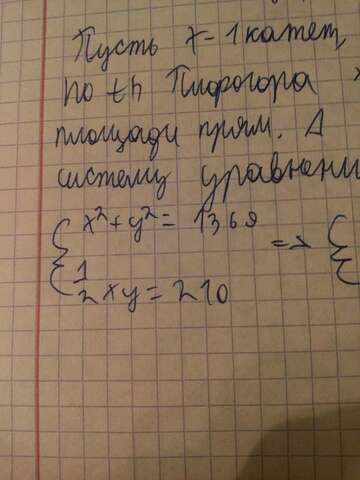 Пусть x - 1 катет,
по th Пифогора
площади прям. Δ
систему уравнени
{ x² + y² = 1369
=> {
1/2 xy = 210